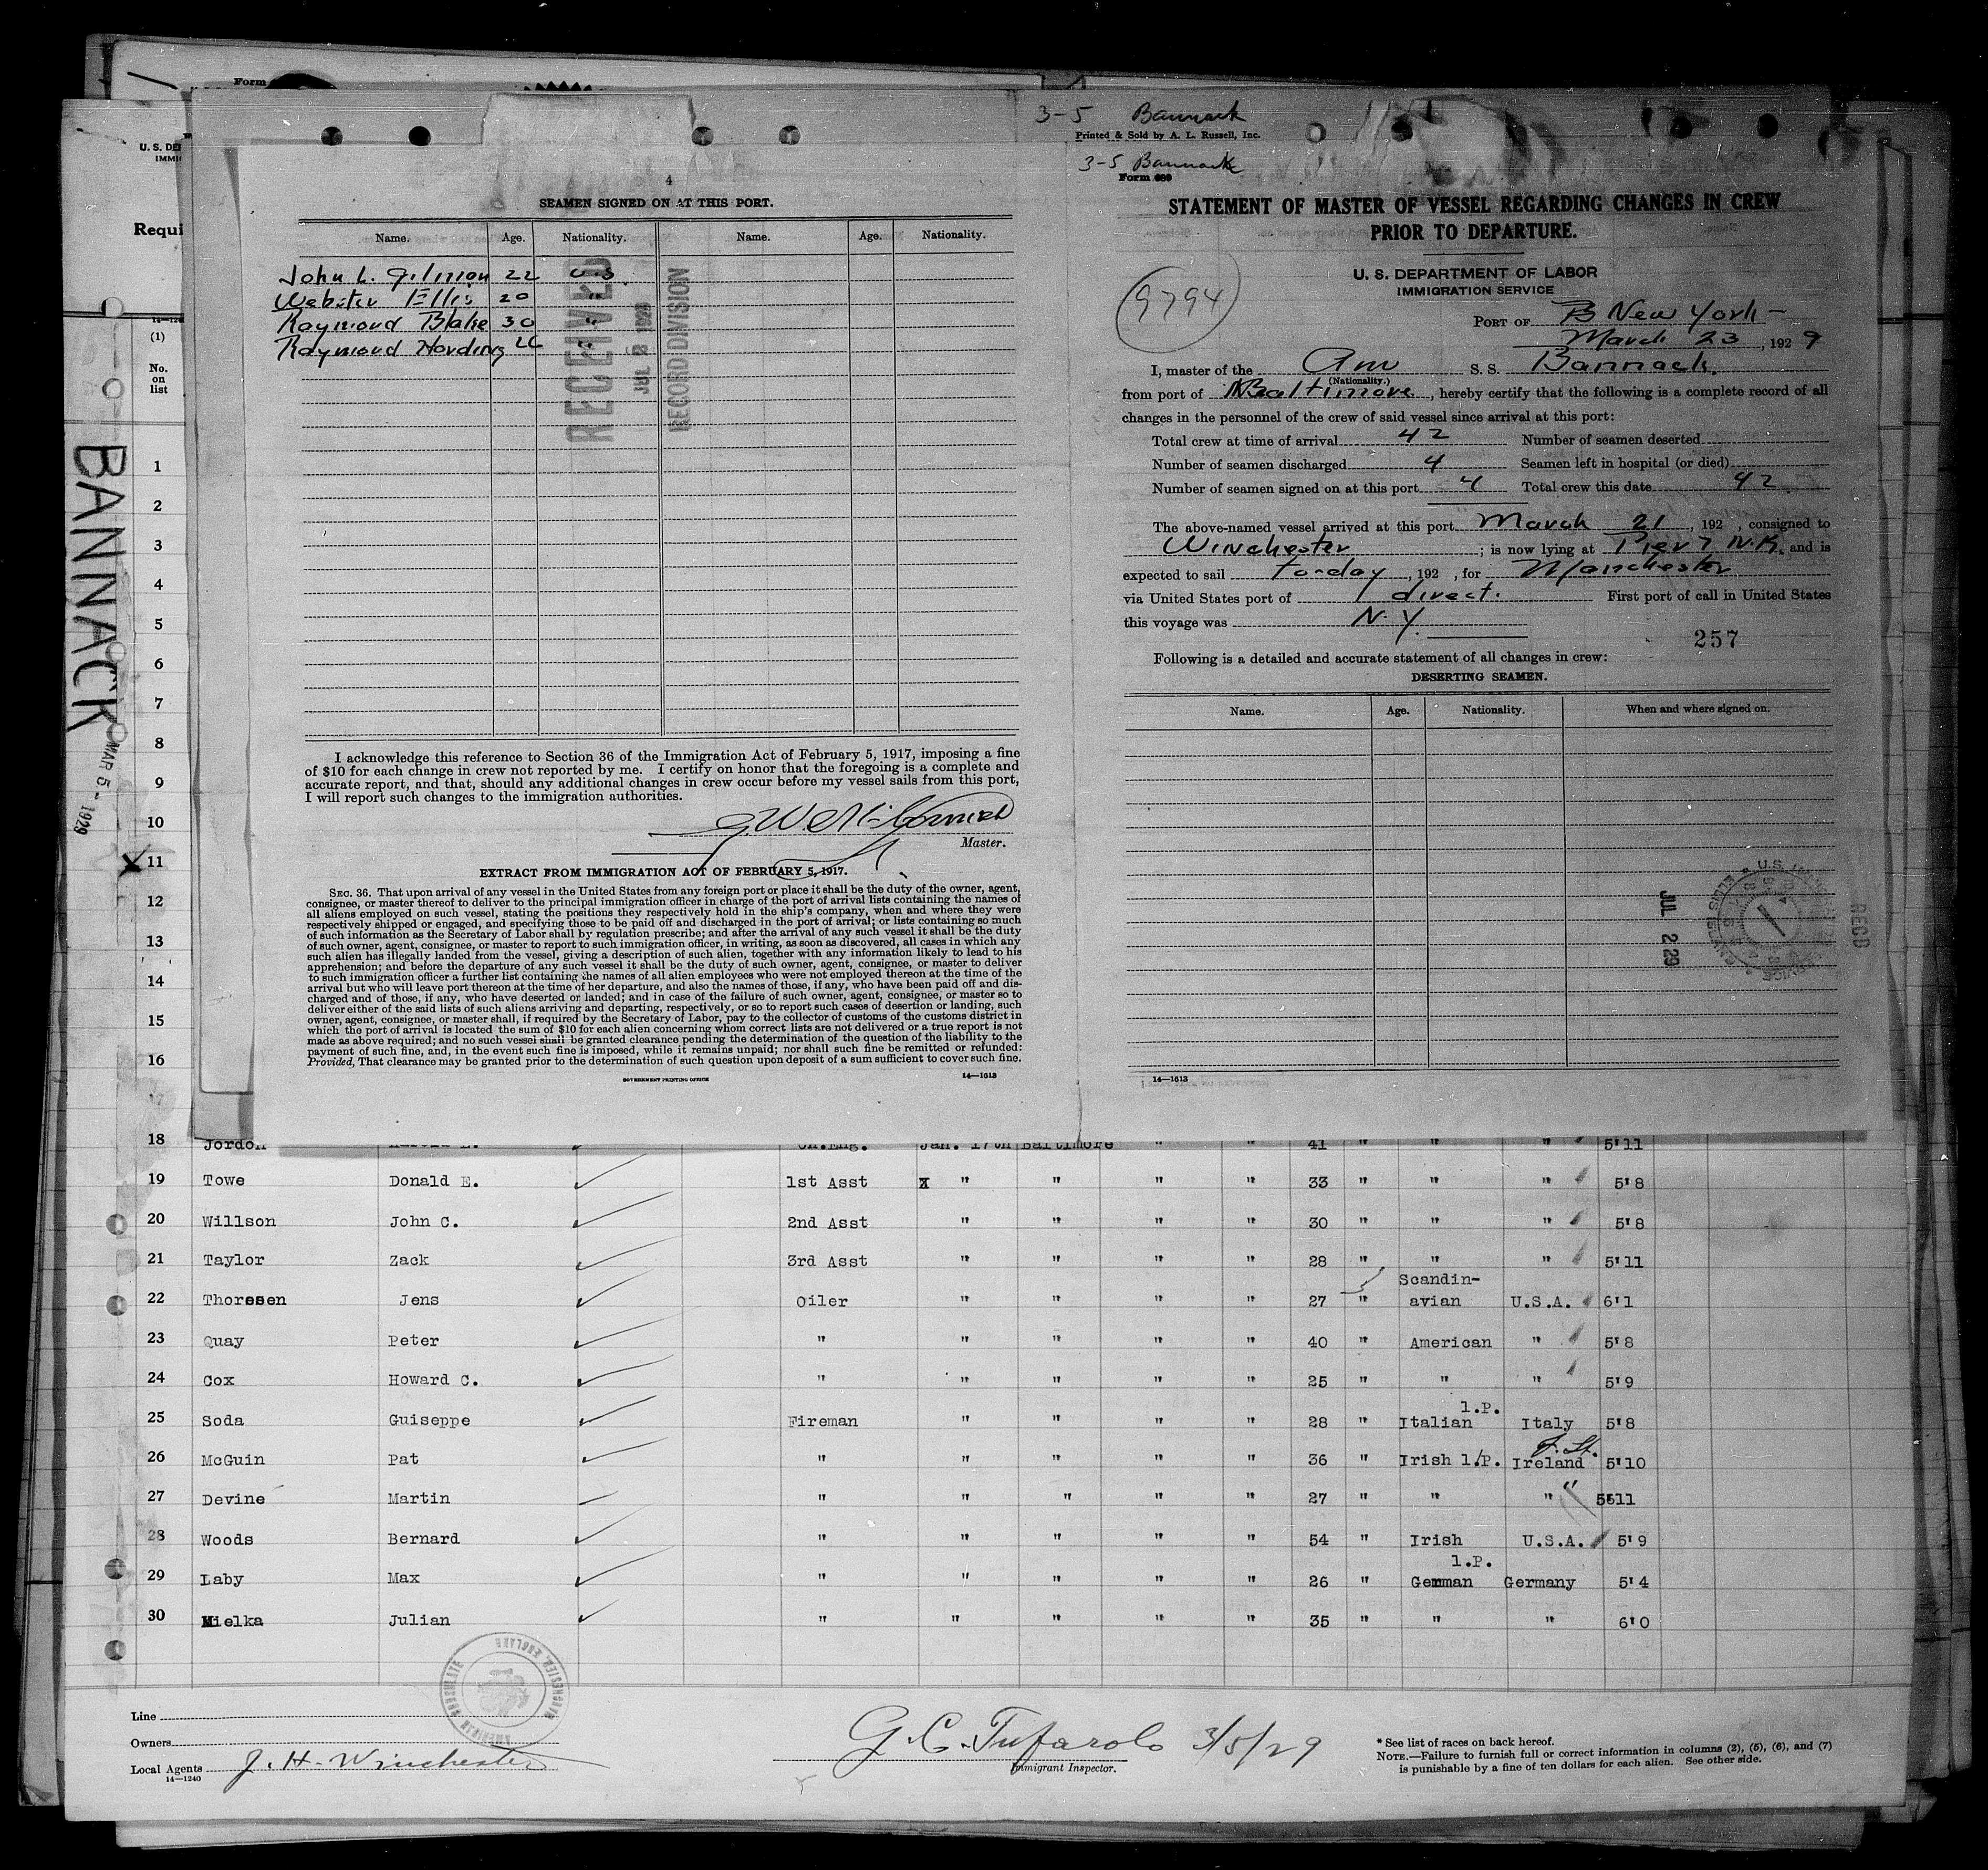 Form
U. S. DE
IMMI
Requi
14—124
(1)
No.
on
list
BANNACK
MAR 5 - 1929
4
SEAMEN SIGNED ON AT THIS PORT.
Name. Age. Nationality. Name. Age. Nationality.
John L. Gilmon 22 U.S
Webster Ellis 20 "
Raymond Blake 30 "
Raymond Harding "
RECEIVED
RECORD DIVISION
I acknowledge this reference to Section 36 of the Immigration Act of February 5, 1917, imposing a fine
of $10 for each change in crew not reported by me. I certify on honor that the foregoing is a complete and
accurate report, and that, should any additional changes in crew occur before my vessel sails from this port,
I will report such changes to the immigration authorities.
Master.
EXTRACT FROM IMMIGRATION ACT OF FEBRUARY 5, 1917.
SEC. 36. That upon arrival of any vessel in the United States from any foreign port or place it shall be the duty of the owner, agent,
consignee, or master thereof to deliver to the principal immigration officer in charge of the port of arrival lists containing the names of
all aliens employed on such vessel, stating the positions they respectively hold in the ship's company, when and where they were
respectively shipped or engaged, and specifying those to be paid off and discharged in the port of arrival; or lists containing so much
of such information as the Secretary of Labor shall by regulation prescribe; and after the arrival of any such vessel it shall be the duty
of such owner, agent, consignee, or master to report to such immigration officer, in writing, as soon as discovered, all cases in which any
such alien has illegally landed from the vessel, giving a description of such alien, together with any information likely to lead to his
apprehension; and before the departure of any such vessel it shall be the duty of such owner, agent, consignee, or master to deliver
to such immigration officer a further list containing the names of all alien employees who were not employed thereon at the time of the
arrival but who will leave port thereon at the time of her departure, and also the names of those, if any, who have been paid off and dis-
charged and of those, if any, who have deserted or landed; and in case of the failure of such owner, agent, consignee, or master so to
deliver either of the said lists of such aliens arriving and departing, respectively, or so to report such cases of desertion or landing, such
owner, agent, consignee, or master shall, if required by the Secretary of Labor, pay to the collector of customs of the customs district in
which the port of arrival is located the sum of $10 for each alien concerning whom correct lists are not delivered or a true report is not
made as above required; and no such vessel shall be granted clearance pending the determination of the question of the liability to the
payment of such fine, and, in the event such fine is imposed, while it remains unpaid; nor shall such fine be remitted or refunded:
Provided, That clearance may be granted prior to the determination of such question upon deposit of a sum sufficient to cover such fine.
GOVERNMENT PRINTING OFFICE 14—1613
3-5 Bannack
Printed & Sold by A. L. Russell, Inc.
3-5 Bannack
Form 689
STATEMENT OF MASTER OF VESSEL REGARDING CHANGES IN CREW
PRIOR TO DEPARTURE.
U. S. DEPARTMENT OF LABOR
IMMIGRATION SERVICE
9794
PORT OF New York
March 23, 1929
I, master of the Am S. S. Bannack.
(Nationality.)
from port of Baltimore, hereby certify that the following is a complete record of all
changes in the personnel of the crew of said vessel since arrival at this port:
Total crew at time of arrival 42 Number of seamen deserted
Number of seamen discharged 4 Seamen left in hospital (or died)
Number of seamen signed on at this port 4 Total crew this date 42
The above-named vessel arrived at this port March 21, 192 , consigned to
Winchester ; is now lying at Pier 7 N.R. and is
expected to sail to-day, 192 , for Manchester
via United States port of direct. First port of call in United States
this voyage was N. Y.
257
Following is a detailed and accurate statement of all changes in crew:
DESERTING SEAMEN.
Name. Age. Nationality. When and where signed on.
JUL 2 29
RECD
14—1613
1
2
3
4
5
6
7
8
9
10
X 11
12
13
14
15
16
17
18 Jordon Harold E. Ch.Eng. Jan. 17th Baltimore " " 41 " " " 5'11
19 Towe Donald E. 1st Asst X " " " " 33 " " " 5'8
20 Willson John C. 2nd Asst " " " " 30 " " " 5'8
21 Taylor Zack 3rd Asst " " " " 28 " " " 5'11
22 Thoresen Jens Oiler " " " " 27 " Scandin-
avian U.S.A. 6'1
23 Quay Peter " " " " " 40 " American " 5'8
24 Cox Howard C. " " " " " 25 " " " 5'9
25 Soda Guiseppe Fireman " " " " 28 " Italian 1.P. Italy 5'8
26 McGuin Pat " " " " " 36 " Irish 1.P. Ireland 5'10
27 Devine Martin " " " " " 27 " " " 5'11
28 Woods Bernard " " " " " 54 " Irish U.S.A. 5'9
29 Laby Max " " " " " 26 " German 1.P. Germany 5'4
30 Mielka Julian " " " " " 35 " " " 6'0
AMERICAN CONSULATE MANCHESTER, ENGLAND
Line
Owners
Local Agents J. H. Winchester
14—1240
G. C. Tufarolo 3/5/29
Immigrant Inspector.
* See list of races on back hereof.
NOTE.—Failure to furnish full or correct information in columns (2), (5), (6), and (7)
is punishable by a fine of ten dollars for each alien. See other side.